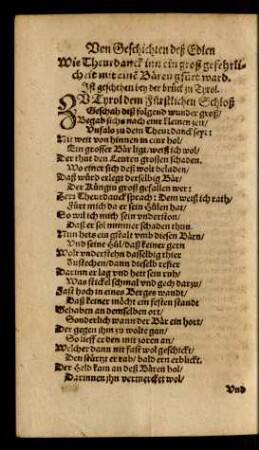 Von Geschichten deß Edlen
Wie Theurdanck inn ein groß gefehrli-
cheit mit einẽ Bären gfürt ward.
Ist geschehen bey der brück zu Tyrol.
ZV Tyrol dem Fürstlichen Schloß
Geschah diß folgend wunder groß/
Begab sichs nach einr kleinen zeit/
Vnfalo zu dem Theurdanck seyt:
Nit weit von hinnen in einr hol/
Ein grosser Bär ligt/ weiß ich wol/
Der thut den Leuten grossen schaden.
Wo einer sich deß wolt beladen/
Daß würd erlegt derselbig Bär/
Der Küngin groß gefallen wer:
Herr Theurdanck sprach: Dem weiß ich rath/
Fürt mich da er sein Hülen hat/
So wil ich mich sein vnderston/
Daß er sol nimmer schaden thun.
Nun hets ein gstalt vmb diesen Bärn/
Vnd seine Hül/ daß keiner gern
Wolt vnderstehn dasselbig thier
Zustechen/ dann dieselb refier
Darinn er lag vnd hett sein ruh/
Was stickel schmal vnd hoch darzu/
Fast hoch in eines Berges wandt/
Daß keiner möcht ein festen standt
Behaben an demselben ort/
Sonderlich wann der Bär ein hort/
Der gegen jhm zu wolte gan/
So lieff er den mit zoren an/
Welcher dann nit fast wol geschickt/
Den stürtzt er rab/ bald ern erblickt.
Der Held kam an deß Bären hol/
Darinnen jhn vermercket wol/
Vnd